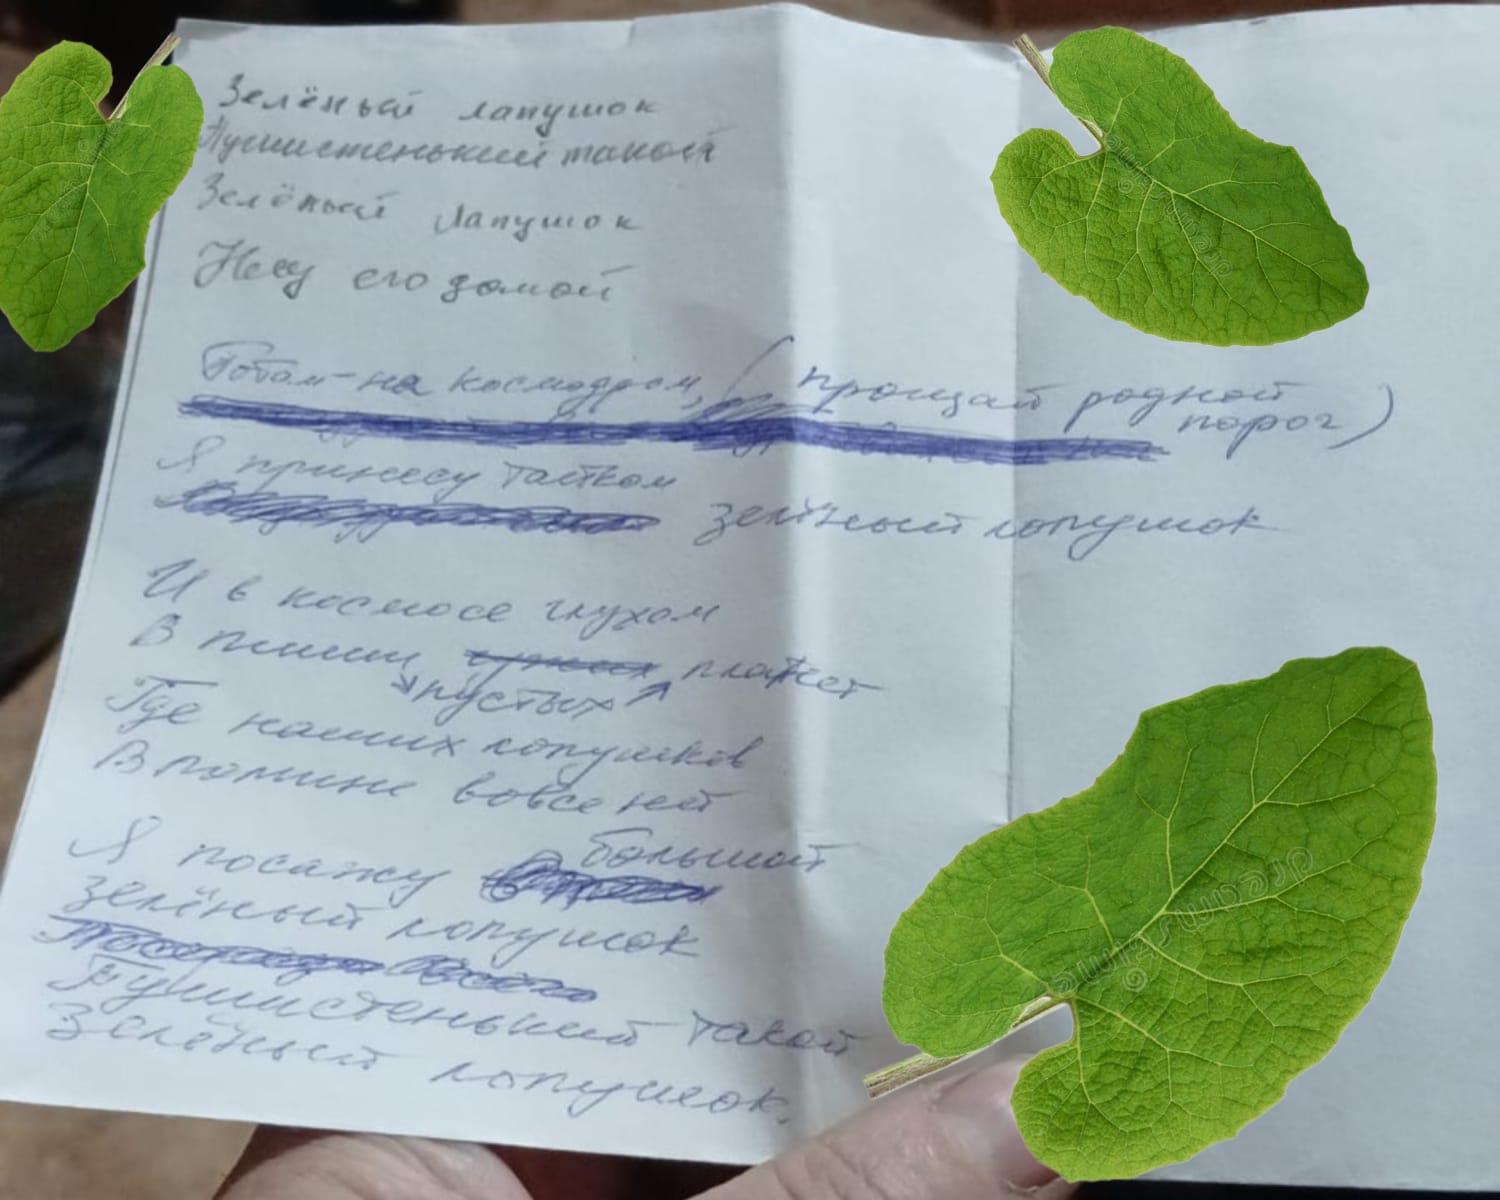 Зелёный лапушок
Пушистенький такой
Зелёный лапушок
Несу его домой
Потом - на космодром, (прощай родной
порог)
Я принесу тайком
зелёный лопушок
И в космосе глухом
В пыли планет
пустых
Где наших лопушков
В помине вовсе нет
Я посажу большой
зелёный лопушок
Пушистенький такой
Зелёный лопушок.
dreamstime